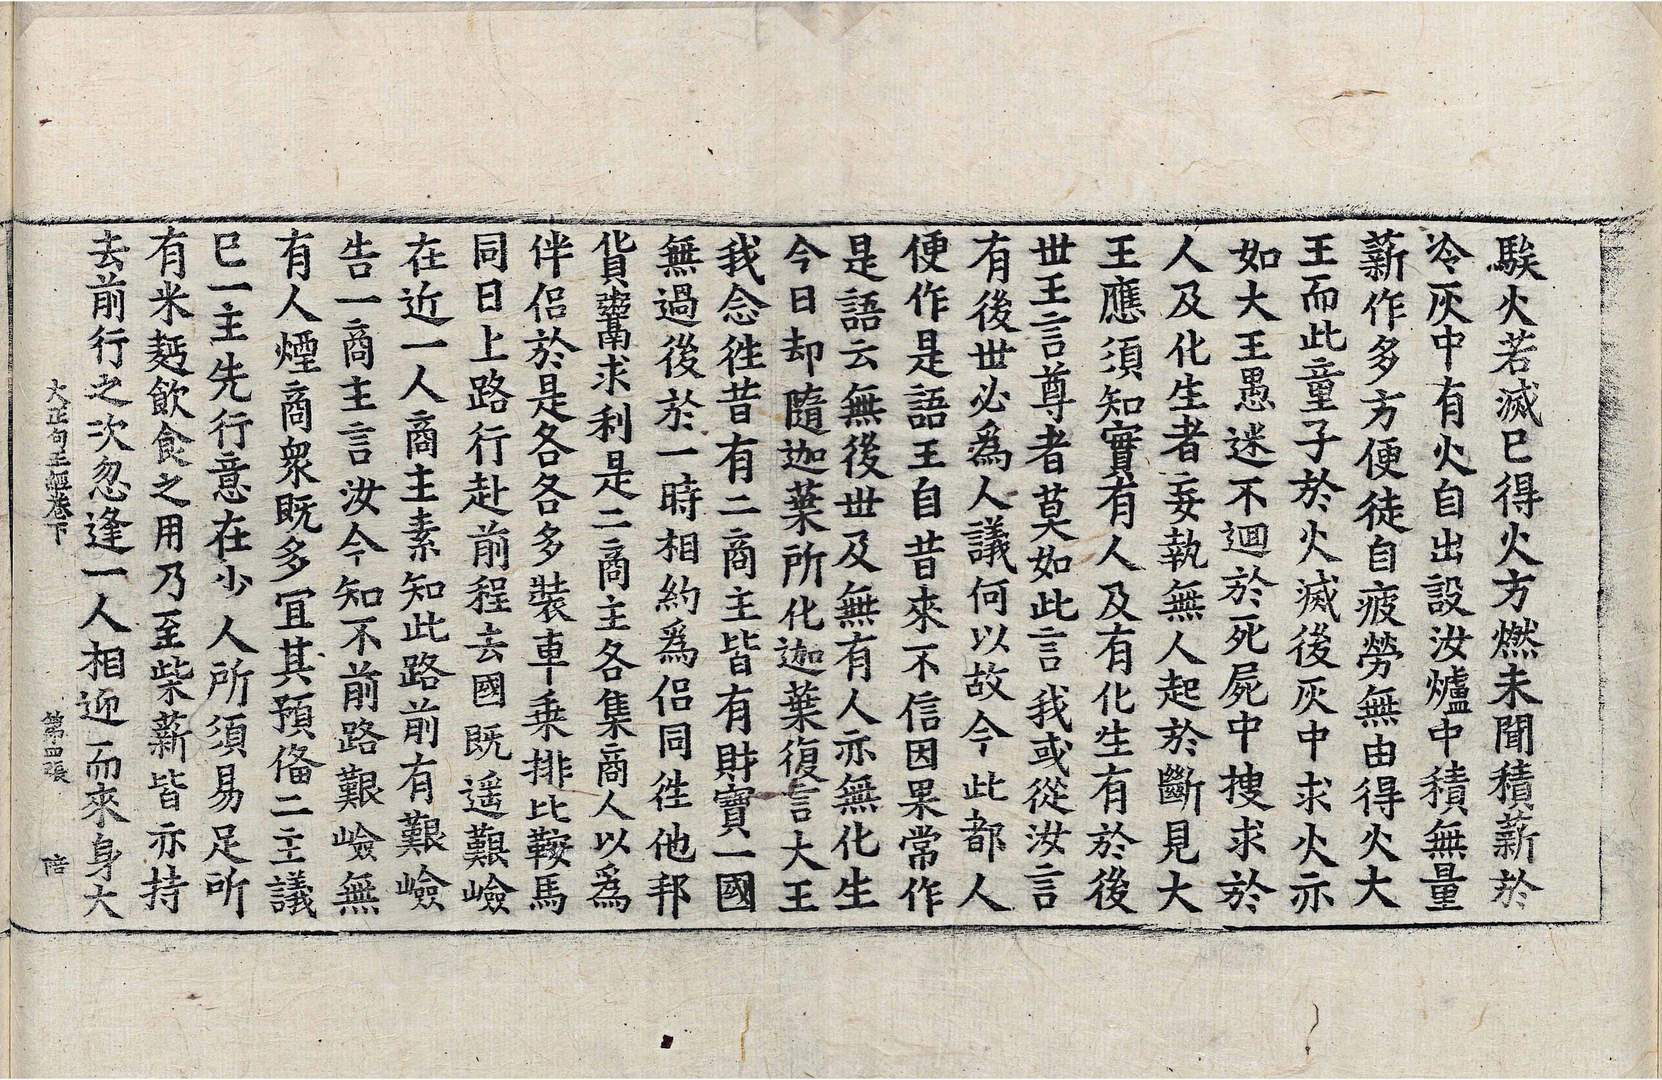 騃火若滅已得火方燃未聞積薪於
冷灰中有火自出設汝爐中積無量
薪作多方便徒自疲勞無由得火大
王而此童子於火滅後灰中求火亦
如大王愚迷不迴於死屍中搜求於
人及化生者妄執無人起於斷見大
王應須知實有人及有化生有於後
世王言尊者莫如此言我或從汝言
有後世必為人議何以故今此都人
便作是語王自昔來不信因果常作
是語云無後世及無有人亦無化生
今日却隨迦葉所化迦葉復言大王
我念徃昔有二商主皆有財寶一國
無過後於一時相約為侶同徃他邦
貨鬻求利是二商主各集商人以為
伴侶於是各各多裝車乗排比鞍馬
同日上路行赴前程去國既遥艱嶮
在近一人商主素知此路前有艱嶮
告一商主言汝今知不前路艱嶮無
有人煙商衆既多冝其預俻二主議
已一主先行意在少人所須易足所
有米麫飲食之用乃至柴薪皆亦持
去前行之次忽逢一人相迎而來身大
大正句王經卷下 第四張 陪